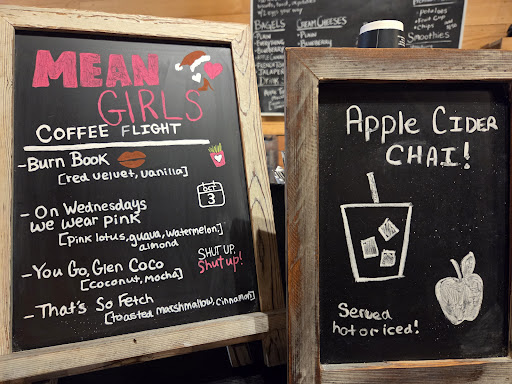 MEAN
GIRLS
COFFEE FLIGHT
-Burn Book
[red velvet, vanilla]
-On Wednesdays
we wear pink
[Pink lotus, guava, watermelon,
almond]
OCT
3
-You Go, Glen Coco
[coconut, mocha]
SHUT UP.
Shut up!
-That's So Fetch
[toasted marshmallow, cinnamon]
BAGELS
PLAIN
EVERYTHING
BLUEBERRY
CREAM CHEESES
PLAIN
BLUEBERRY
Smoothies
Apple CIDER
CHAI!
Served
hot or iced!